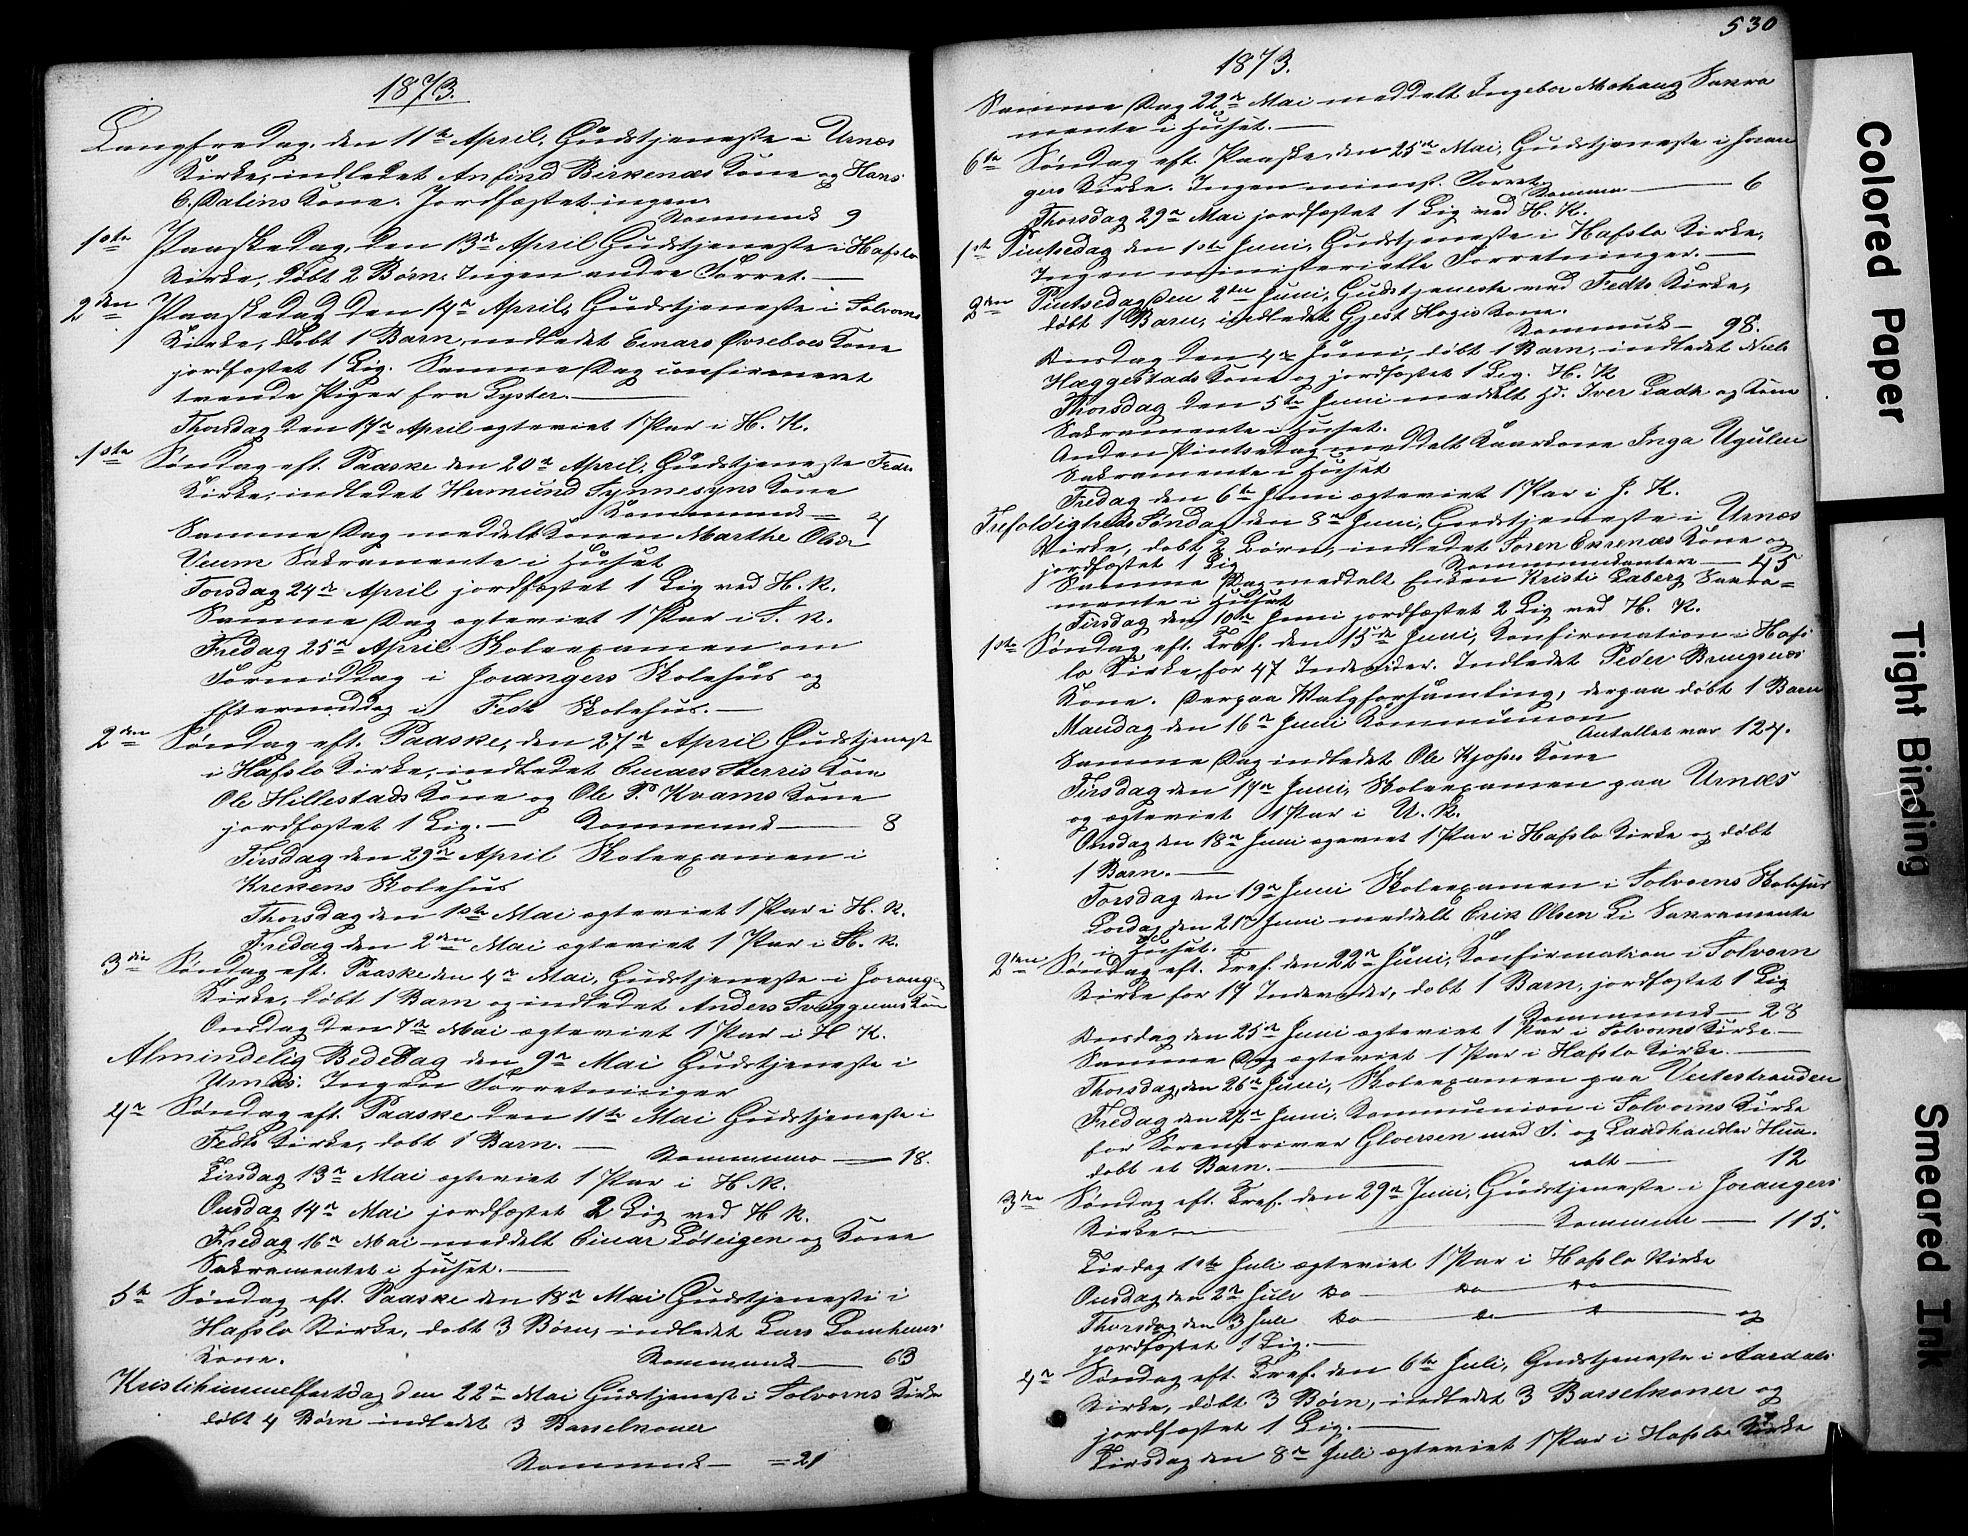 1873.
Langfredag, den 11te April, Gudstjeneste i Urnæs
Kirke, indledet Anfind Birkenæs Kone og Hans
C. Dalens Kone. Jordfæstet ingen.
Kommunk 9
1ste Paaskedag, den 13de April Gudstjeneste i Hafslo
Kirke, døbt 2 Børn. Ingen andre Forret.
2den Paaskedag den 14de April, Gudstjeneste i Solvorns
Kirke, døbt 1 Barn, indledet Einars Øvreboes Kone
jordfæstet 1 Lig. Samme Dag confirmeret
tvende Piger fra Lyster.
Thorsdag den 17de April ægteviet 1 Par i H. K.
1ste Søndag eft. Paaske den 20de April, Gudstjeneste Fedts
Kirke, indledet Hermund Synnesyns Kone
Kommunk 7
Samme Dag meddelt Konen Marthe Olsdr
Veum Sakramente i Huset
Torsdag 24de April jordfæstet 1 Lig ved H. K.
Samme Dag ægteviet 1 Par i S. K.
Fredag 25de April Skoleexamen om
Formiddag i Joranger Skolehus og
Eftermiddag i Fedt Skolehus.
2den Søndag eft. Paaske, den 27de April Gudstjeneste
i Hafslo Kirke, indledet Einars Sterris Kone
Ole Hillestads Kone og Ole P. Kvams Kone
jordfæstet 1 Lig. Kommunk 8
Tirsdag den 29de April Skoleexamen i
Krekens Skolehus
Thorsdag den 1ste Mai ægteviet 1 Par i H. K.
Fredag den 2den Mai ægteviet 1 Par i H. K.
3die Søndag eft. Paaske den 4de Mai, Gudstjeneste i Joranger
Kirke, døbt 1 Barn og indledet Anders Kone
Onsdag den 7de Mai ægteviet 1 Par i H K.
Almindelig BedeDag den 9de Mai Gudstjeneste i
Urnæs. Ingen Forretninger
4de Søndag eft. Paaske den 11te Mai Gudstjeneste i
Fedts Kirke, døbt 1 Barn.
Kommun 18.
Tirsdag 13de Mai ægteviet 1 Par i H. K.
Onsdag 14de Mai jordfæstet 2 Lig ved H K.
Fredag 16de Mai meddelt Einar Løteigen og Kone
Sakramentet i Huset.
5te Søndag eft. Paaske den 18de Mai Gudstjeneste i
Hafslo Kirke, døbt 3 Børn, indledet Lars Lomheims
Kone. Kommunk 63
Kristihimmelfartsdag den 22de Mai Gudstjeneste i Solvorns Kirke
døbt 4 Børn indledet 3 Barselkoner
Kommunk = 21
530
1873.
Samme Dag 22de Mai meddelt Ingebor Mohaug Sakra
mente i Huset.
6te Søndag eft. Paaske den 25de Mai, Gudstjeneste i Joran
gers Kirke. Ingen minist. Forret.
Kommun 6
Thorsdag 29de Mai jordfæstet 1 Lig ved H. K.
1ste Pintsedag den 1ste Juni, Gudstjeneste i Hafslo Kirke,
Ingen ministerielle Forretninger.
2den Pintsedag den 2den Juni, Gudstjeneste ved Fedts Kirke,
døbt 1 Barn, indledet Gjest Kone.
Kommunk 98.
Onsdag den 4de Juni, døbt 1 Barn, indledet Niels
Hæggestads Kone og jordfæstet 1 Lig. H. K
Thorsdag den 5te Juni meddelt Iver Ladh og Kone
Sakramente i Huset.
Anden Pintsedag meddelt Kaarkone Inga Ugulen
Sakramente i Huset
Fredag den 6te Juni ægteviet 1 Par i J. K.
Trefoldigheds Søndag den 8de Juni, Gudstjeneste i Urnæs
Kirke, døbt 2 Børn, indledet Soren Kone og
jordfæstet 1 Lig Kommunikanter 45
Samme Dag meddelt Enken Kristi Laberg Sakra=
mente i Huset
Tirsdag den 10de Juni jordfæstet 2 Lig ved H. K.
1ste Søndag eft. Tref. den 15de Juni, Konfirmation i Hafs
lo Kirke for 47 Individer. Indledet Peder Kone.
Derpaa Valgforsamling, derpaa døbt 1 Barn
Mandag den 16de Juni Kommunion
Antallet var 127.
Samme Dag indledet Ole Kjøs Kone
Tirsdag den 17de Juni, Skoleexamen paa Urnæs
og ægteviet 1 Par i U. K.
Onsdag den 18de Juni ægteviet 1 Par i Hafslo Kirke og døbt
1 Barn.
Torsdag den 19de Juni Skoleexamen i Solvorns Skolehus
Lørdag den 21de Juni meddelt Erik Olsen Li Sakramente
i Huset.
2den Søndag eft. Tref. den 22de Juni, Konfirmation i Solvorn
Kirke for 17 Individer, døbt 1 Barn, jordfæstet 1 Lig
Kommunk 28
Onsdag den 25de Juni ægteviet 1 Par i Solvorns Kirke
Samme Dag ægteviet 1 Par i Hafslo Kirke.
Thorsdag, den 26de Juni, Skoleexamen paa Veitestranden
Fredag den 27de Juni, Kommunion i Solvorns Kirke
for Sorenskriver Gloersen med F. og Landhandler
døbt et Barn. alt 12
3die Søndag eft. Tref. den 29de Juni, Gudstjeneste i Jorangers
Kirke Kommun 115.
Tirsdag 1ste Juli ægteviet 1 Par i Hafslo Kirke
Onsdag den 2de Juli Do Do Do
Thorsdag den 3 Juli Do Do og
jordfæstet 1 Lig.
4de Søndag eft. Tref. den 6te Juli, Gudstjeneste i Aardals
Kirke, døbt 3 Børn, indledet 3 Barselkoner og
jordfæstet 1 Lig.
Tirsdag den 8de Juli ægteviet 1 Par i Hafslo Kirke
Colored Paper
Tight Binding
Smeared Ink